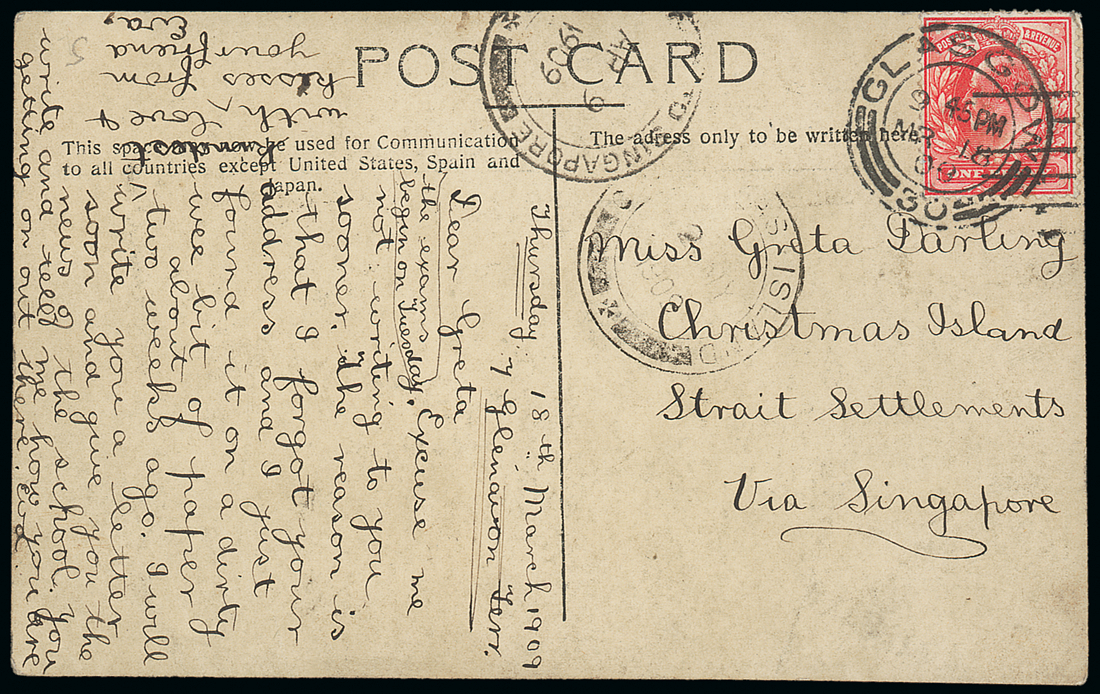 POST CARD
This space may now be used for Communication
to all countries except United States, Spain and
Japan.
The adress only to be written here
& REVENUE
ONE
GLASGOW
9 45 PM
MR 18
09
SINGAPORE
AP
9
1909
S ISLAND
Miss Greta Darling
Christmas Island
Strait Settlements
Via Singapore
Thursday 18th March 1909
7 Glenavon Terr.
Dear Greta
Excuse me
not writing to you
sooner. The reason is
that I forgot your
address and I just
found it on a dirty
wee bit of paper
about two weeks ago. I will
write you a letter
soon and give you the
news of the school. You
write and tell me how you are
getting on out there.
the exams
begin on Tuesday.
with love &
kisses from
your friend
Eva,